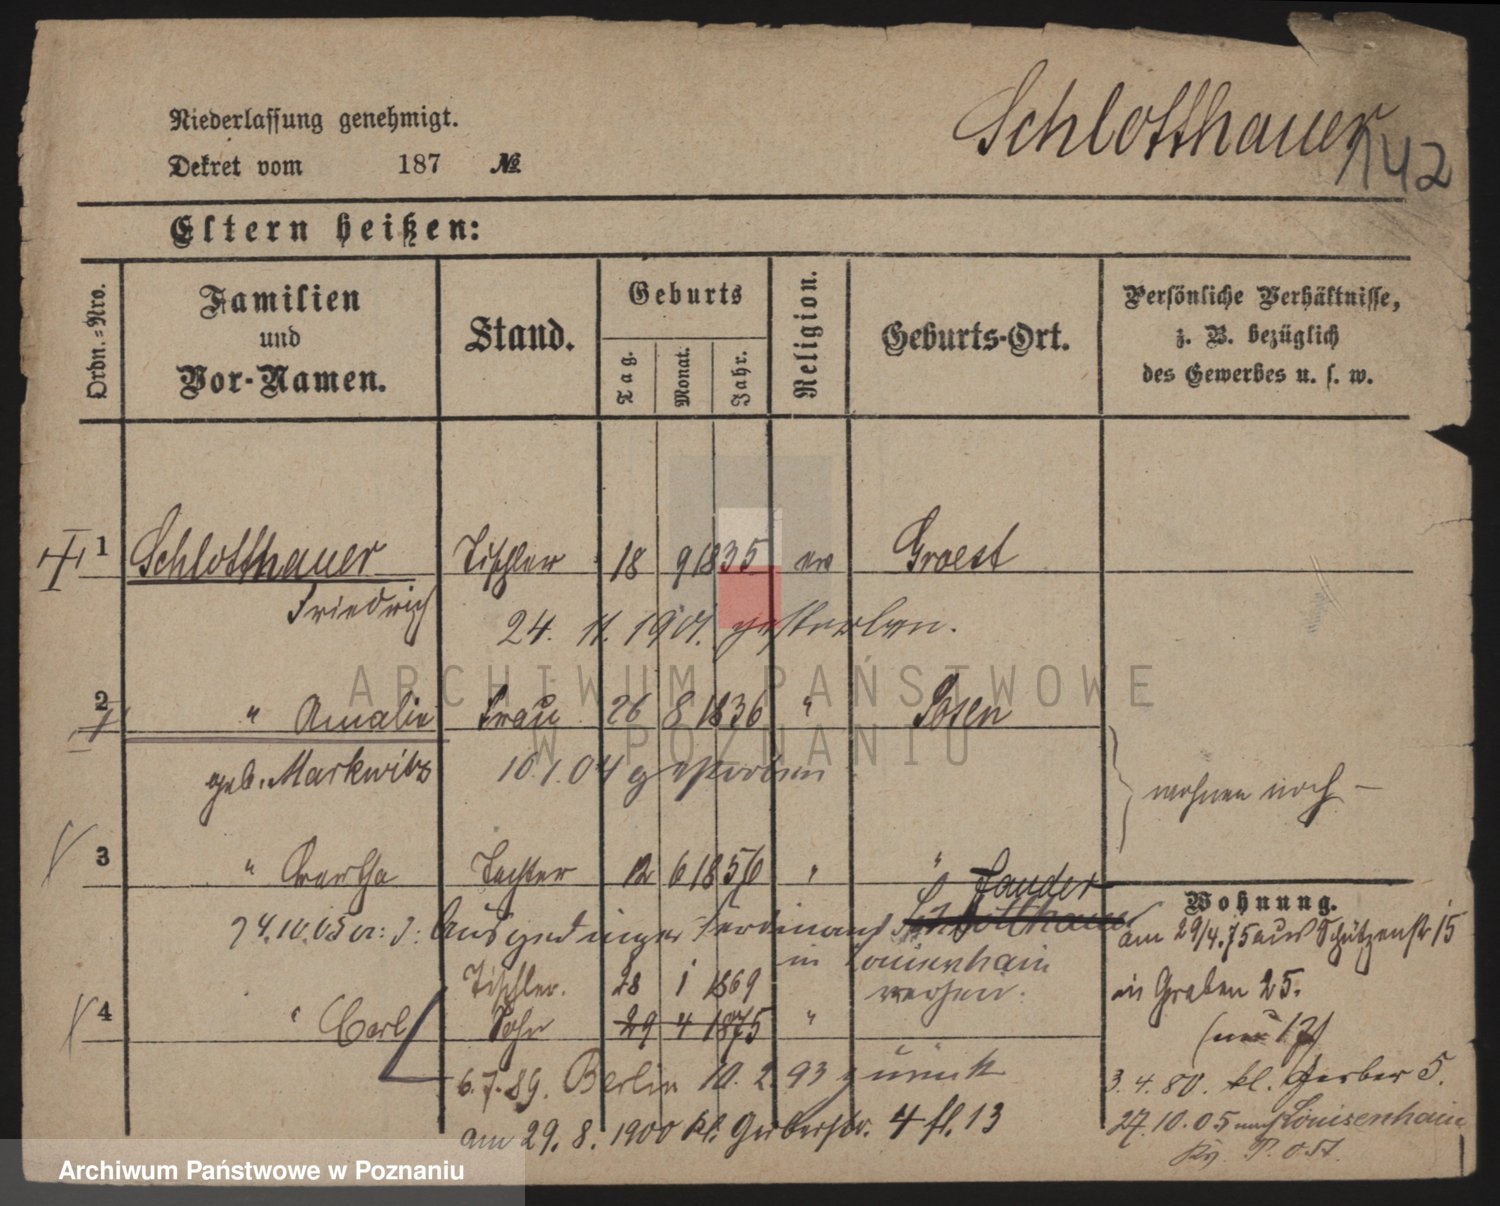 Niederlassung genehmigt.
Dekret vom 187 №
Schlotthauer
142
Eltern heißen:
Ordn.=Nro.
Familien
und
Vor-Namen.
Stand.
Geburts
Tag.
Monat.
Jahr.
Religion.
Geburts-Ort.
Persönliche Verhältnisse,
z. B. bezüglich
des Gewerbes u. s. w.
1 Schlotthauer Tischler 18 9 1835 ev Groest
Friedrich
24. 11. 1901. gestorben.
2 " Amalie Frau 26 8 1836 " Posen
geb. Markwitz
10.1.04 gestorben
wohnen noch –
3 " Martha Tochter 12 6 1856 " "
4.10.05 Ausgedinger Ferdinand Schlotthauer Sander
in Louisenhain
Tischler. 28 1 1869
4 " Carl Sohn 29 4 1875 "
6.7.89. Berlin 10. 2. 93 zurück
am 29. 8. 1900 kl. Gerberstr. 4 fl. 13
Wohnung.
am 29/4.75 aus Schützenstr 15
in Graben 25.
(neu 17)
3. 4. 80. kl. Gerber 5.
27.10.05 nach Louisenhain
Kr. P. Ost.
ARCHIWUM PAŃSTWOWE
W POZNANIU
Archiwum Państwowe w Poznaniu